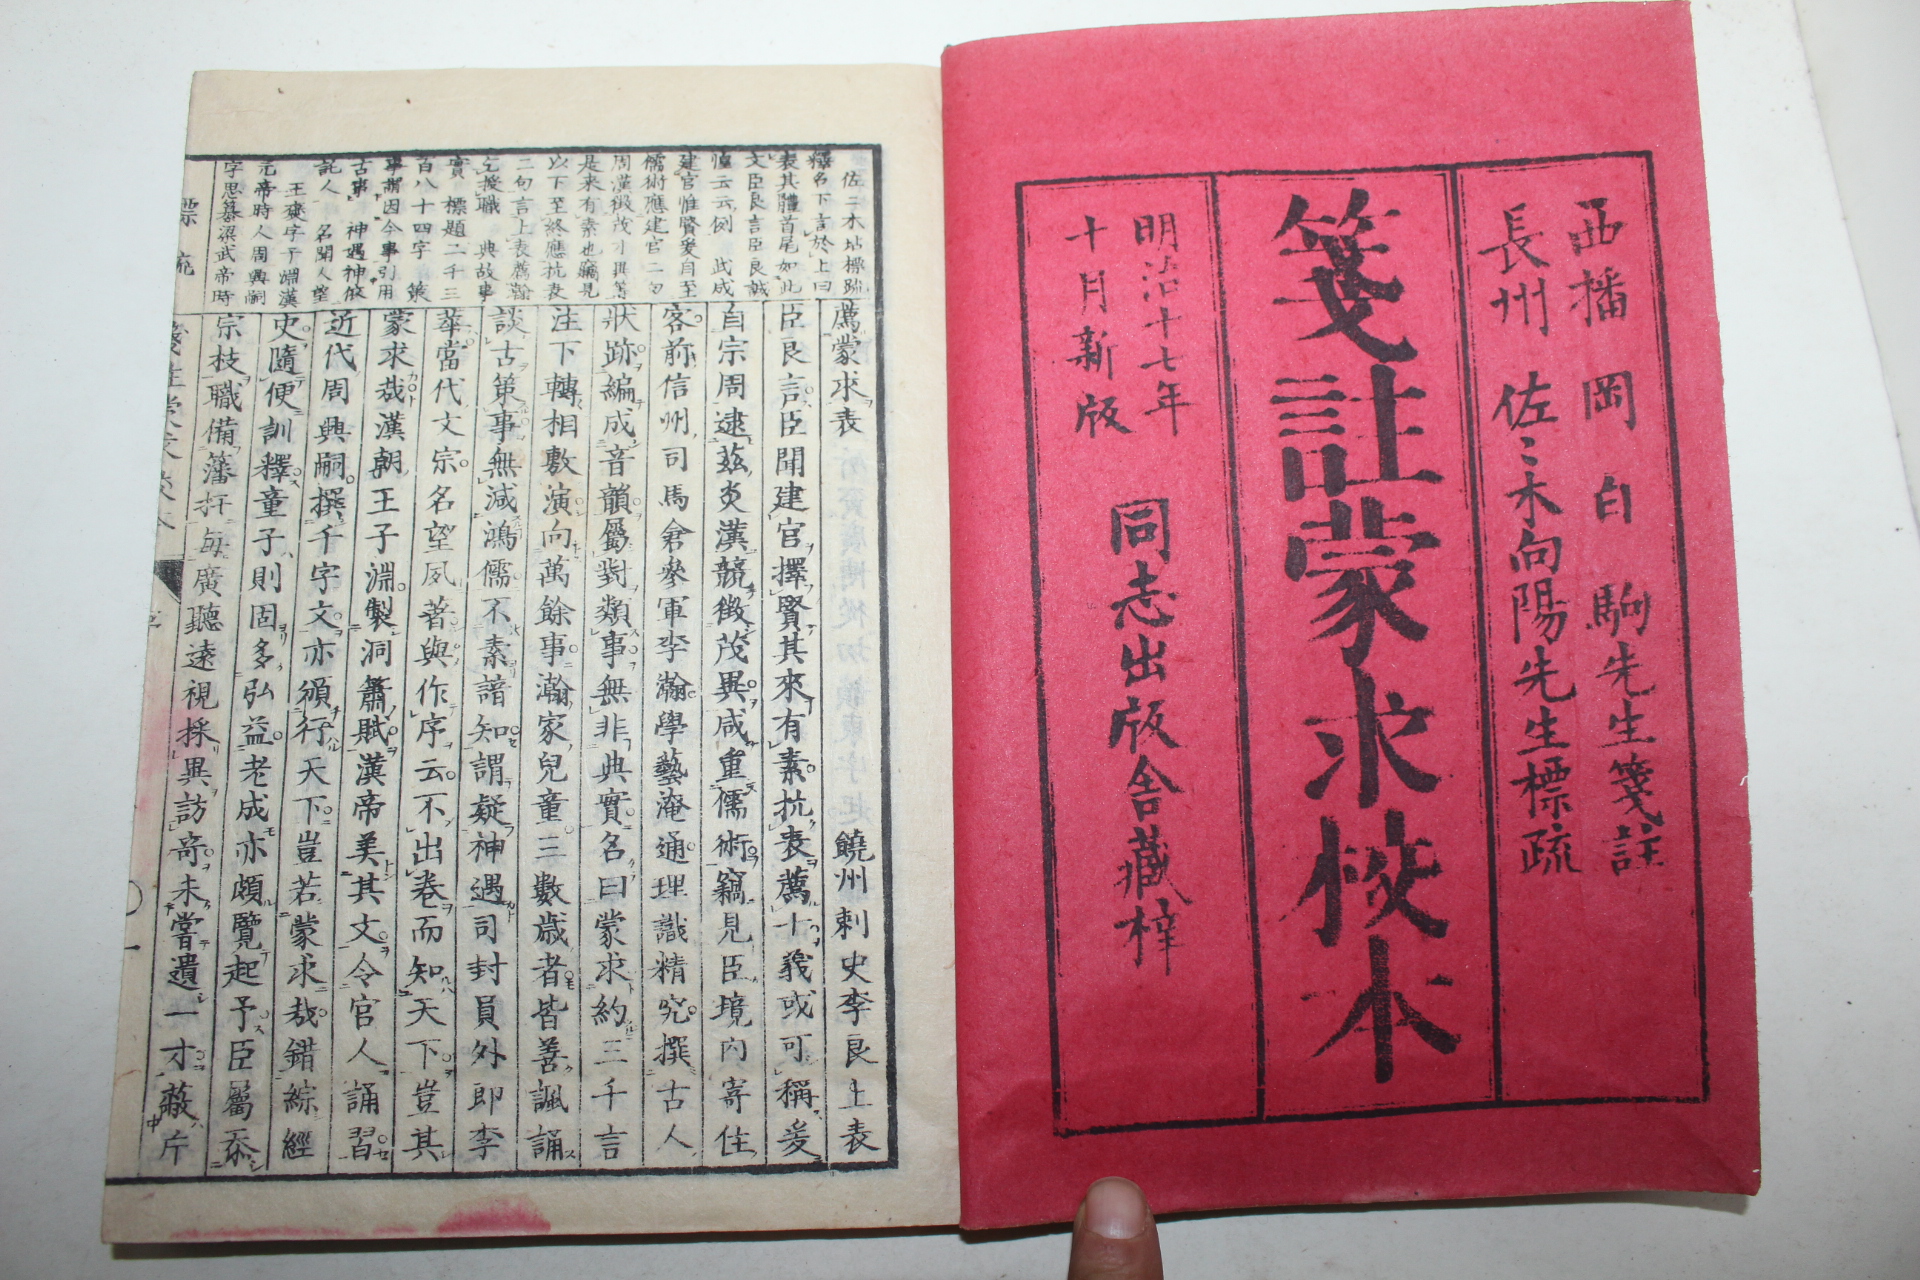 西播 岡 白 駒先生箋註
長州 佐〻木向陽先生標疏
箋註蒙求校本
明治十七年
十月新版
同志出版舎藏梓
佐々木坫標疏
薦蒙求表 饒州刺史李良上表
臣良言臣聞建官擇賢其來有素抗表薦士義或可稱爰
自宗周逮茲炎漢競徴茂異咸重儒術竊見臣境内寄住
客前信州司馬倉參軍李瀚學藝淹通理識精究撰古人
狀跡編成音韻屬對類事無非典實名曰蒙求約三千言
注下轉相敷演向萬餘事瀚家兒童三數歳者皆善諷誦
談古策事無減鴻儒不素諳知謂疑神遇司封員外郎李
華當代文宗名望夙著與作序云不出卷而知天下豈其
蒙求哉漢朝王子淵製洞簫賦漢帝美其文令官人誦習
近代周興嗣撰千字文亦頒行天下豈若蒙求哉錯綜經
史隨便訓釋童子則固多弘益老成亦頗覽起予臣屬忝
宗枝職備藩扞毎廣聽遠視採異訪奇未嘗遺一才蔽片
釋名下言於上曰
表其體首尾如此
文臣良言臣良誠
惶云云例 此成
建官惟賢爰自至
儒術應建官二句
周漢徴茂才異等
是來有素也竊見
以下至終應抗表
二句言上表薦瀚
乞授職 典故事
實 標題二千三
百八十四字 策
事謂因今事引用
古事 神遇神仮
託人 名聞人望
王褒字子淵漢
元帝時人周興嗣
字思纂梁武帝時
標疏